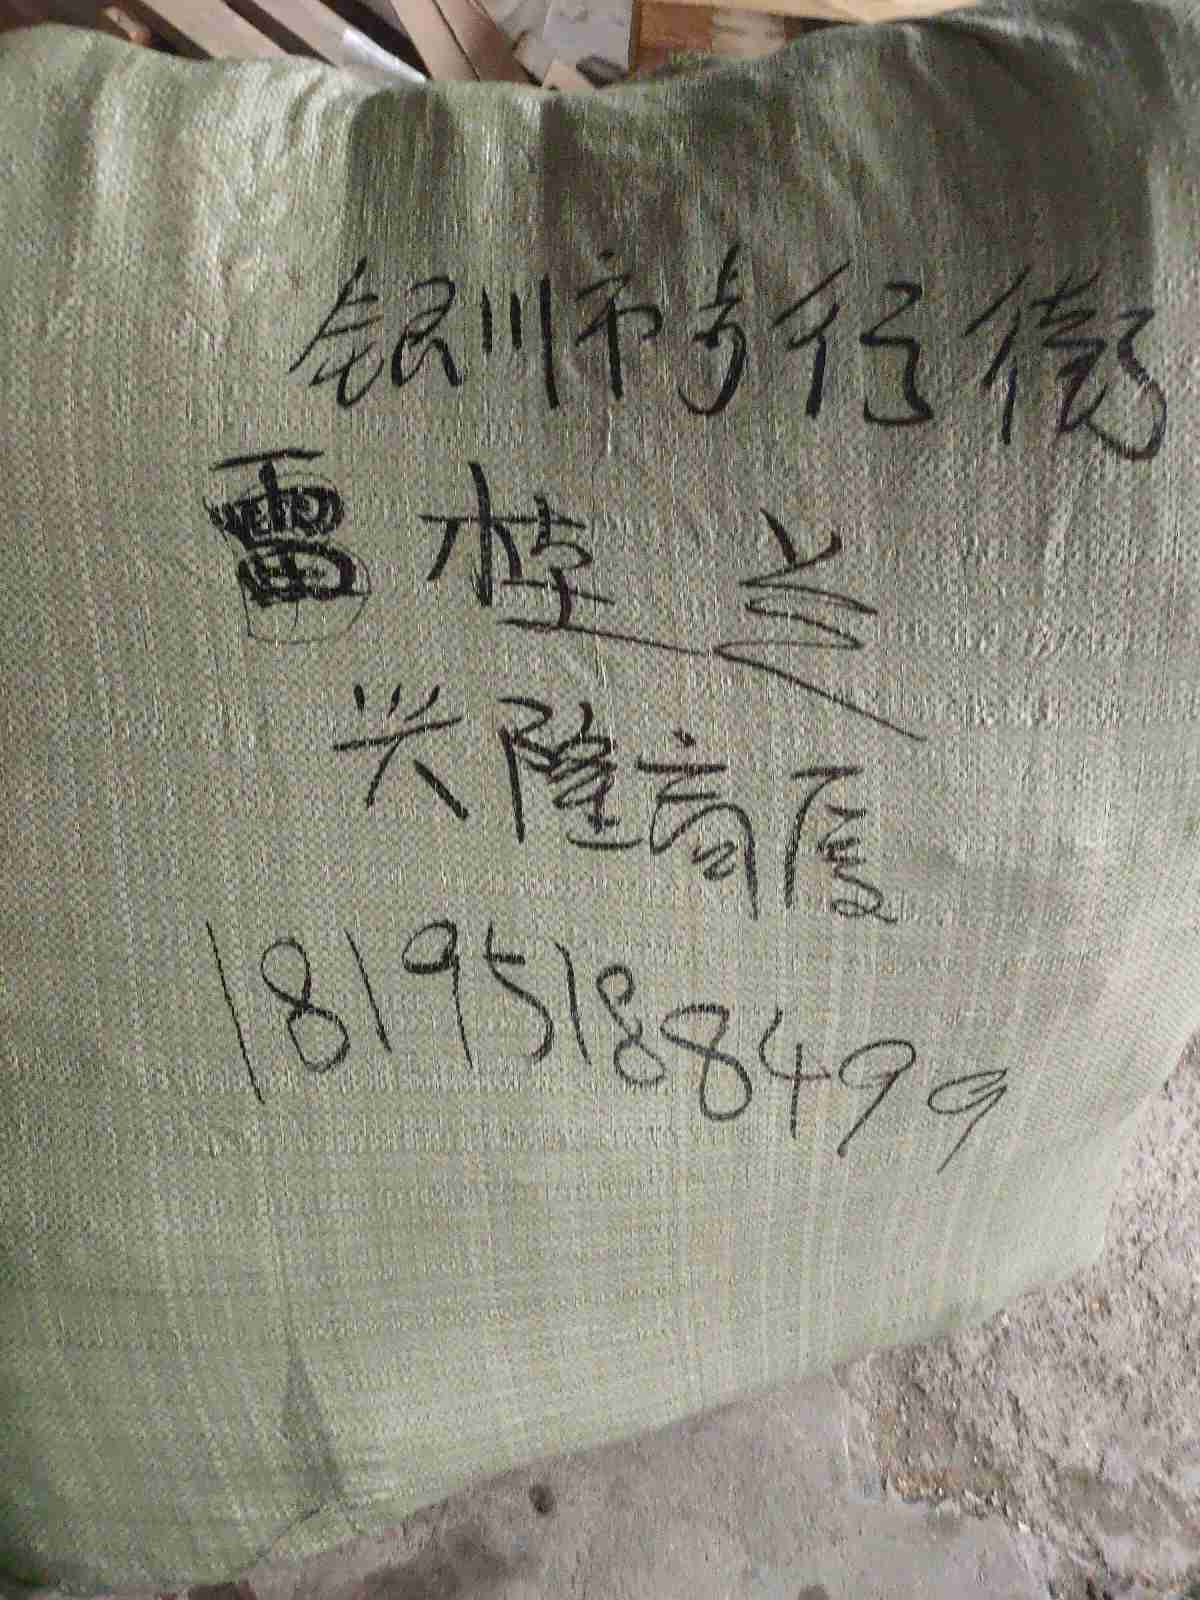 银川市步行街
雷桂兰
兴隆高厦
18195188499